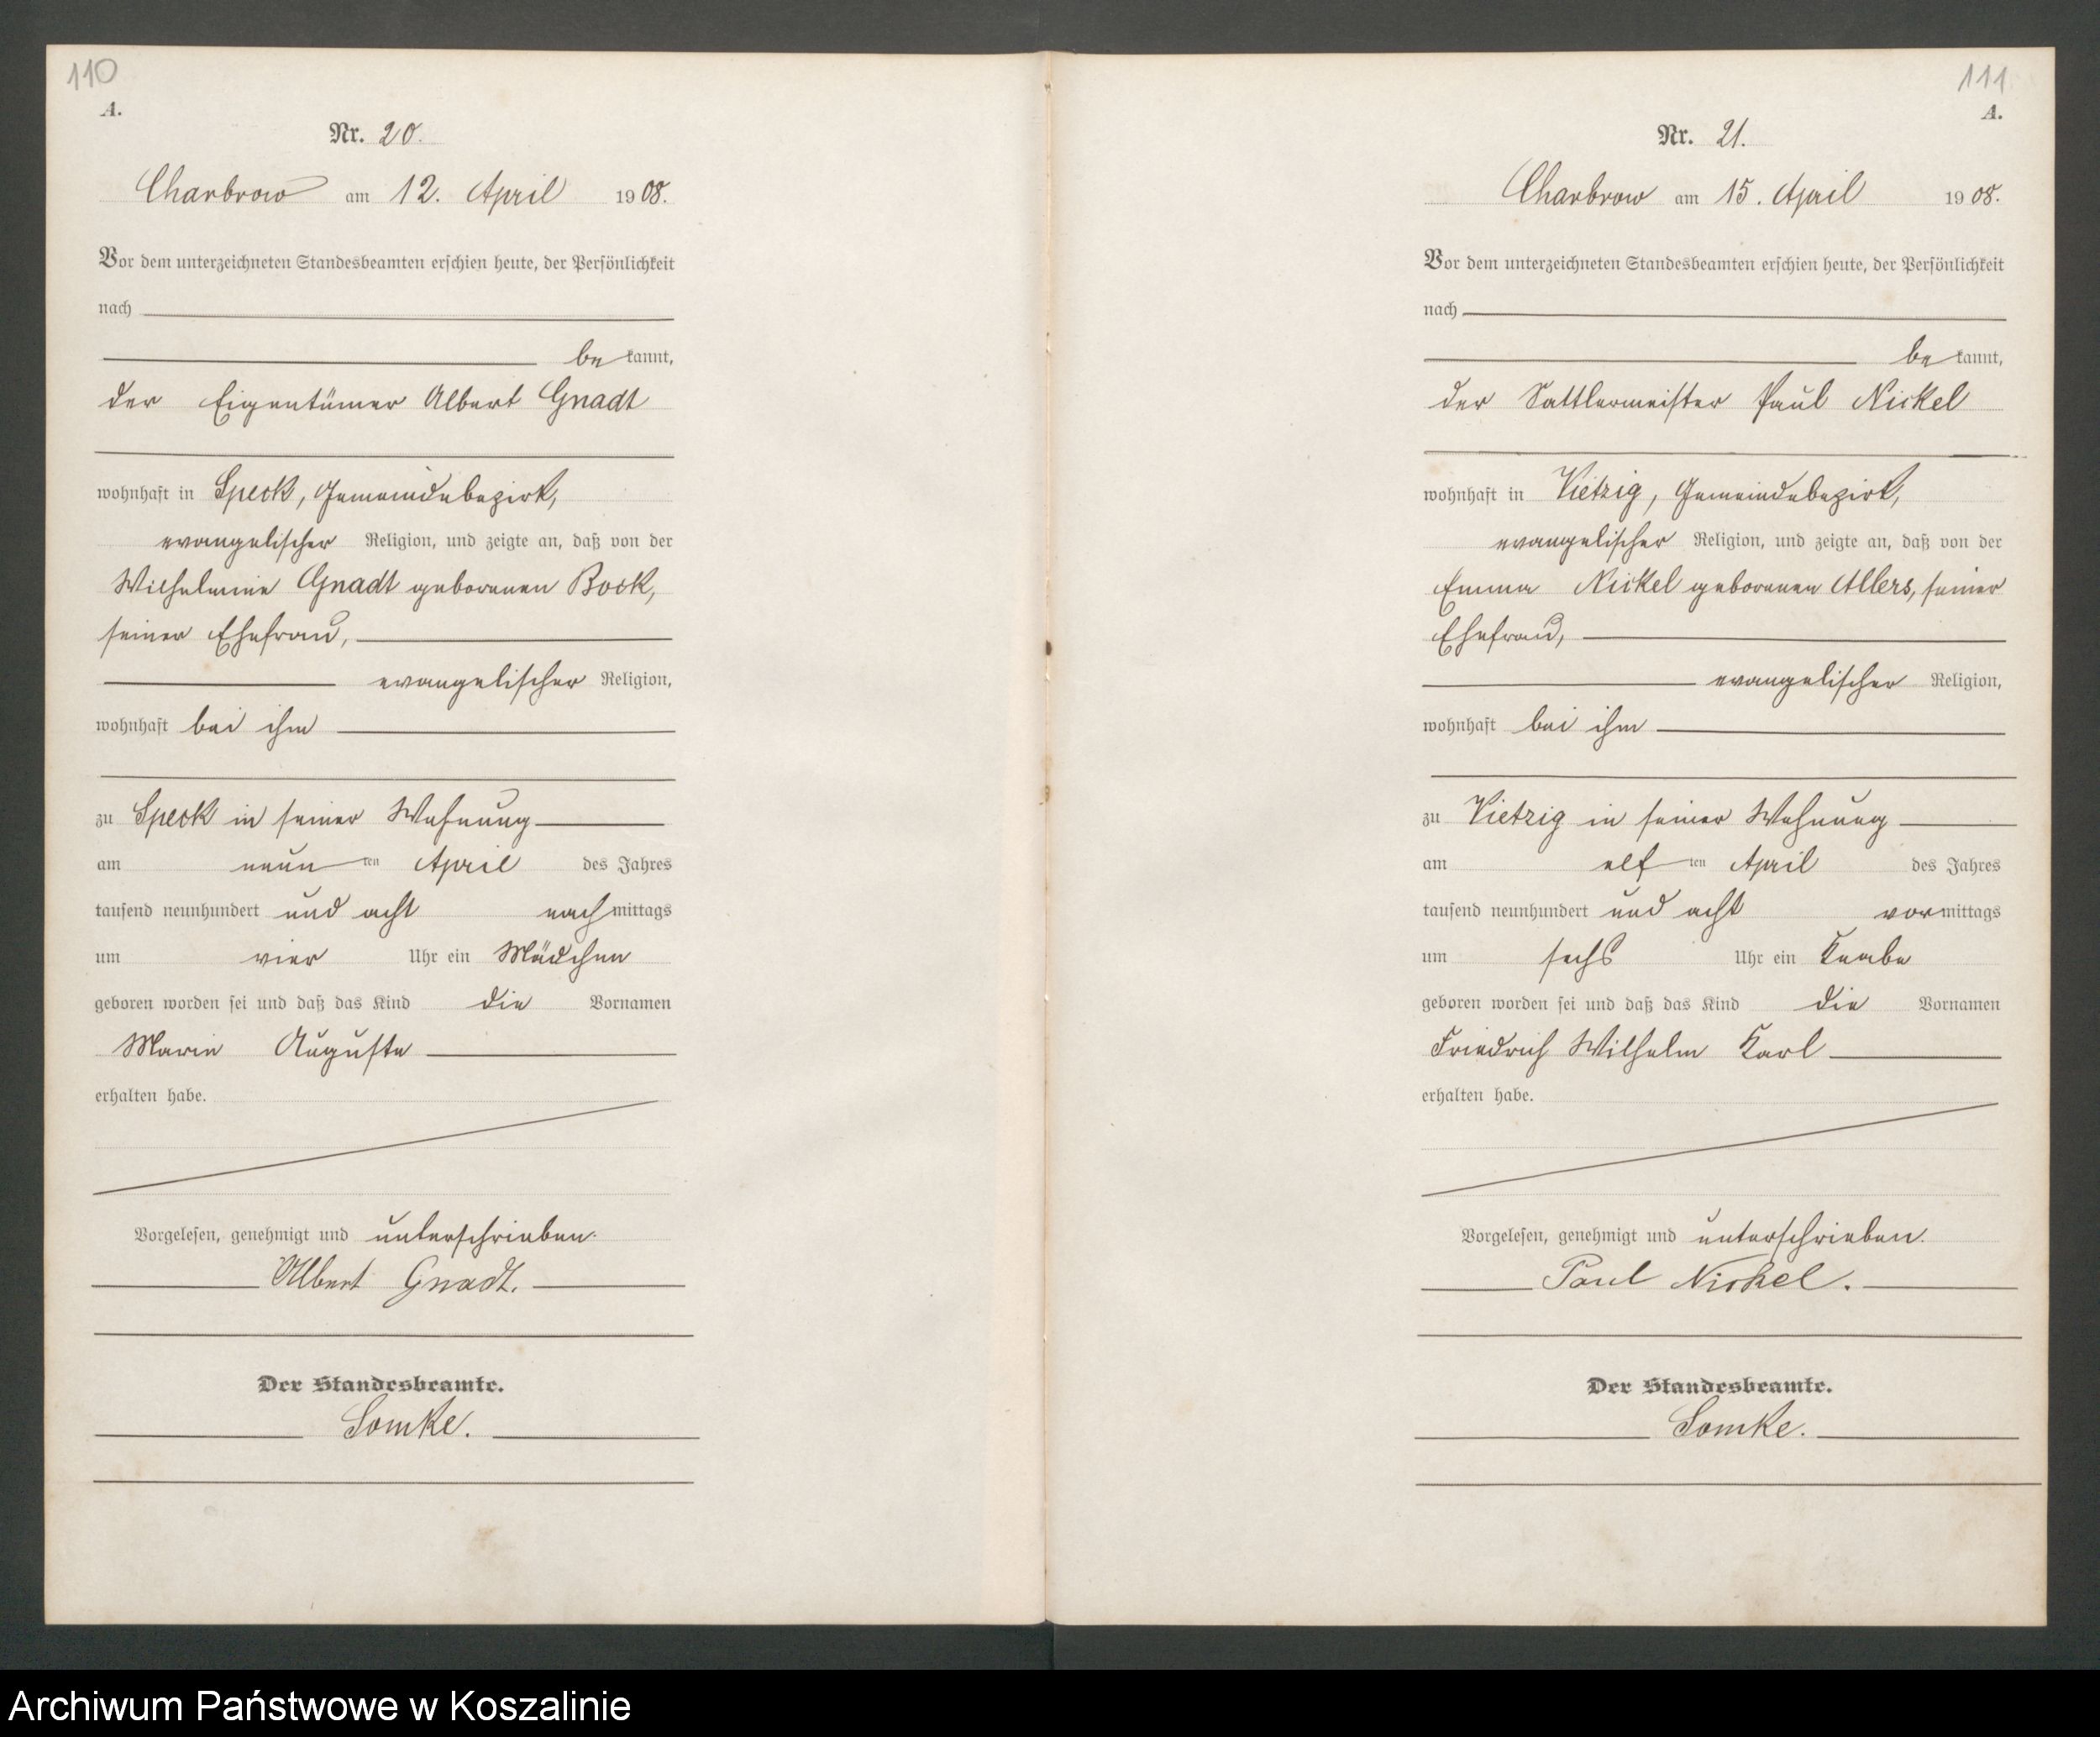 110
A.
Nr. 20.
Charbrow am 12. April 1908.
Vor dem unterzeichneten Standesbeamten erschien heute, der Persönlichkeit
nach
be kannt,
der Eigentümer Albert Gnadt
wohnhaft in Speck, Gemeindebezirk,
evangelischer Religion, und zeigte an, daß von der
Wilhelmine Gnadt geborenen Bock,
seiner Ehefrau,
evangelischer Religion,
wohnhaft bei ihm
zu Speck in seiner Wohnung
am neun ten April des Jahres
tausend neunhundert und acht nach mittags
um vier Uhr ein Mädchen
geboren worden sei und daß das Kind die Vornamen
Marie Auguste
erhalten habe.
Vorgelesen, genehmigt und unterschrieben.
Albert Gnadt.
Der Standesbeamte.
Somke.
111
A.
Nr. 21.
Charbrow am 15. April 1908.
Vor dem unterzeichneten Standesbeamten erschien heute, der Persönlichkeit
nach
be kannt,
der Sattlermeister Paul Nickel
wohnhaft in Vietzig, Gemeindebezirk,
evangelischer Religion, und zeigte an, daß von der
Emma Nickel geborenen Allers, seiner
Ehefrau,
evangelischer Religion,
wohnhaft bei ihm
zu Vietzig in seiner Wohnung
am elf ten April des Jahres
tausend neunhundert und acht vor mittags
um sechs Uhr ein Knabe
geboren worden sei und daß das Kind die Vornamen
Friedrich Wilhelm Karl
erhalten habe.
Vorgelesen, genehmigt und unterschrieben.
Paul Nickel.
Der Standesbeamte.
Somke.
Archiwum Państwowe w Koszalinie